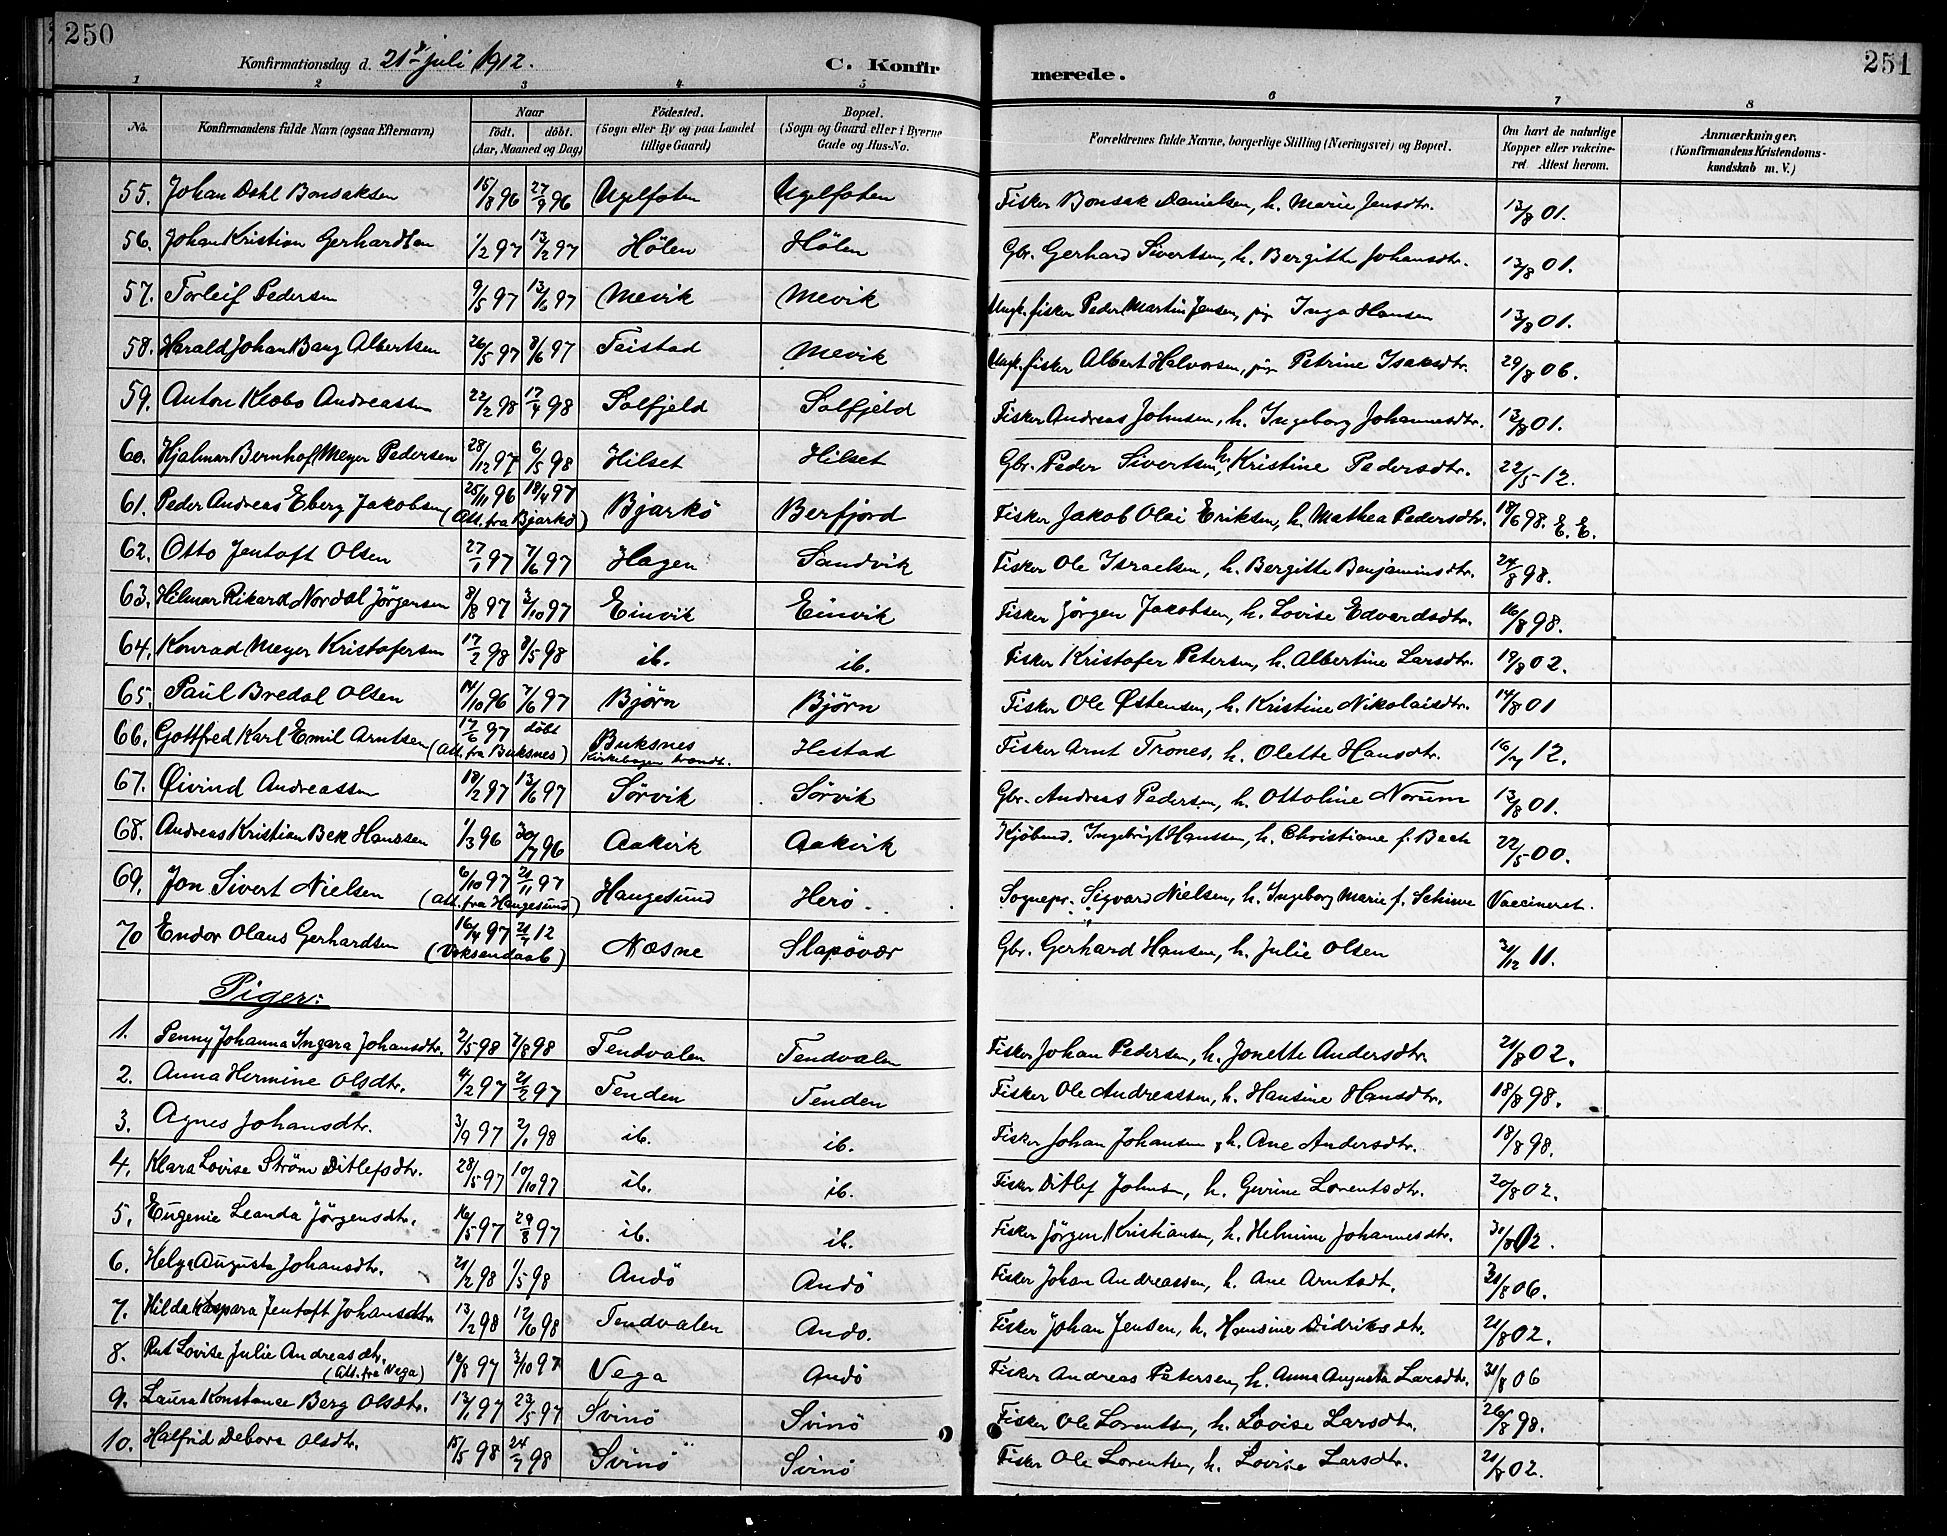 250
Konfirmationsdag d. 21 juli 1912.
C. Konfirmerede.
251
1 2 3 4 5 6 7 8
No. Konfirmandens fulde Navn (ogsaa Efternavn) Naar födt. döbt. (Aar, Maaned og Dag) Födested. (Sogn eller By og paa Landet tillige Gaard) Bopæl. (Sogn og Gaard eller i Byerne Gade og Hus-No. Forældrenes fulde Navne, borgerlige Stilling (Næringsvei) og Bopæl. Om havt de naturlige Kopper eller vakcineret. Attest herom. Anmærkninger. (Konfirmandens Kristendomskundskab m. V.)
55. Johan Dahl Bonsaksen 15/8 96 27/9 96 Uglfoten Uglfoten Fisker Bonsak Danielsen, h. Marie Jensdtr. 13/8 01.
56. Johan Kristian Gerhardsen 1/2 97 13/2 97 Hölen Hölen Gbr. Gerhard Sivertsen, h. Bergitte Johansdtr. 13/8 01.
57. Torleif Pedersen 9/5 97 13/6 97 Mevik Mevik Ungk. fisker Peder Martin Jensen, pig. Inga Hansen 13/8 01.
58. Harald Johan Bang Albertsen 26/5 97 8/6 97 Faistad Mevik Ungk. fisker Albert Halvorsen, pig. Petrine Isaksdtr. 29/8 06.
59. Anton Klobo Andreassen 22/2 98 17/4 98 Solfjeld Solfjeld Fisker Andreas Johnsen, h. Ingeborg Johannesdtr. 13/8 01.
60. Hjalmar Bernhof Meyer Pedersen 28/12 97 6/5 98 Hilset Hilset Gbr. Peder Sivertsen, h. Kristine Pedersdtr. 22/5 12.
61. Peder Andreas Eberg Jakobsen 25/11 96 18/4 97 (Att. fra Bjarkö) Bjarkö Berfjord Fisker Jakob Olai Eriksen, h. Mathea Pedersdtr. 18/6 98. E. E.
62. Otto Jentoft Olsen 27/1 97 7/6 97 Hagen Sandvik Fisker Ole Israelsen, h. Bergitte Benjaminsdtr. 24/8 98.
63. Hilmar Rikard Nordal Jörgensen 8/8 97 3/10 97 Einvik Einvik Fisker Jörgen Jakobsen, h. Lovise Edvardsdtr. 16/8 98.
64. Konrad Meyer Kristofersen 17/2 98 8/5 98 ib. ib. Fisker Kristofer Petersen, h. Albertine Larsdtr. 19/8 02.
65. Paul Bredal Olsen 14/10 96 7/6 97 Bjørn Bjørn Fisker Ole Østensen, h. Kristine Nikolaisdtr. 14/8 01
66. Gottfred Karl Emil Arntsen 17/6 97 döbt (Att. fra Buksnes) Buksnes Kirkebogen brændt. Hestad Fisker Arnt Trones, h. Olette Hansdtr. 16/7 12.
67. Øivind Andreassen 18/2 97 13/6 97 Sörvik Sörvik Gbr. Andreas Pedersen, h. Ottoline Norum 13/8 01.
68. Andreas Kristian Bek Hanssen 1/3 96 30/7 96 Aakvik Aakvik Kjöbmd. Ingebrigt Hanssen, h. Christiane f. Bech 22/5 00.
69. Jon Sivert Nielsen 6/10 97 21/11 97 (Att. fra Haugesund) Haugesund Herö. Sognepr. Sigvard Nielsen, h. Ingeborg Marie f. Schive Vaccineret.
70 Endor Olaus Gerhardsen 16/4 97 21/7 12 (Voksendaab) Næsne Slapövær Gbr. Gerhard Hansen, h. Julie Olsen 31/12 11.
Piger:
1. Penny Johanna Ingara Johansdtr. 2/5 98 7/8 98 Tendvalen Tendvalen Fisker Johan Pedersen, h. Jonette Andersdtr. 21/8 02.
2. Anna Hermine Olsdtr. 4/2 97 21/2 97 Tenden Tenden Fisker Ole Andreassen, h. Hansine Hansdtr. 18/8 98.
3. Agnes Johansdtr. 3/9 97 2/1 98 ib. ib. Fisker Johan Johansen, h. Ane Andersdtr. 18/8 98.
4. Klara Lovise Ström Ditlefsdtr. 28/5 97 10/10 97 ib. ib. Fisker Ditlef Johnsen, h. Gurine Lorentsdtr. 20/8 02.
5. Eugenie Leanda Jörgensdtr. 16/5 97 29/8 97 ib. ib. Fisker Jörgen Kristiansen, h. Helmine Johannesdtr. 31/8 02.
6. Helga Augusta Johansdtr. 21/2 98 1/5 98 Andö Andö Fisker Johan Andreassen, h. Ane Arntsdt. 31/8 06.
7. Hilda Kaspara Jentoft Johansdtr 13/2 98 12/6 98 Tendvalen Ando. Fisker Johan Jensen, h. Hansine Didriksdtr. 21/8 02.
8. Rut Lovise Julie Andreasdtr. (Att. fra Vega) 12/8 97 3/10 97 Vega Andö Fisker Andreas Petersen, h. Anna Augusta Larsdtr. 31/8 06
9. Laura Konstance Berg Olsdtr. 13/1 97 23/5 97 Svinö Svinö Fisker Ole Lorentsen, h. Lovise Larsdtr. 26/8 98.
10. Halfrid Debora Olsdtr. 15/5 98 24/7 98 Svinö Svinö Fisker Ole Lorentsen, h. Lovise Larsdtr. 21/8 02.